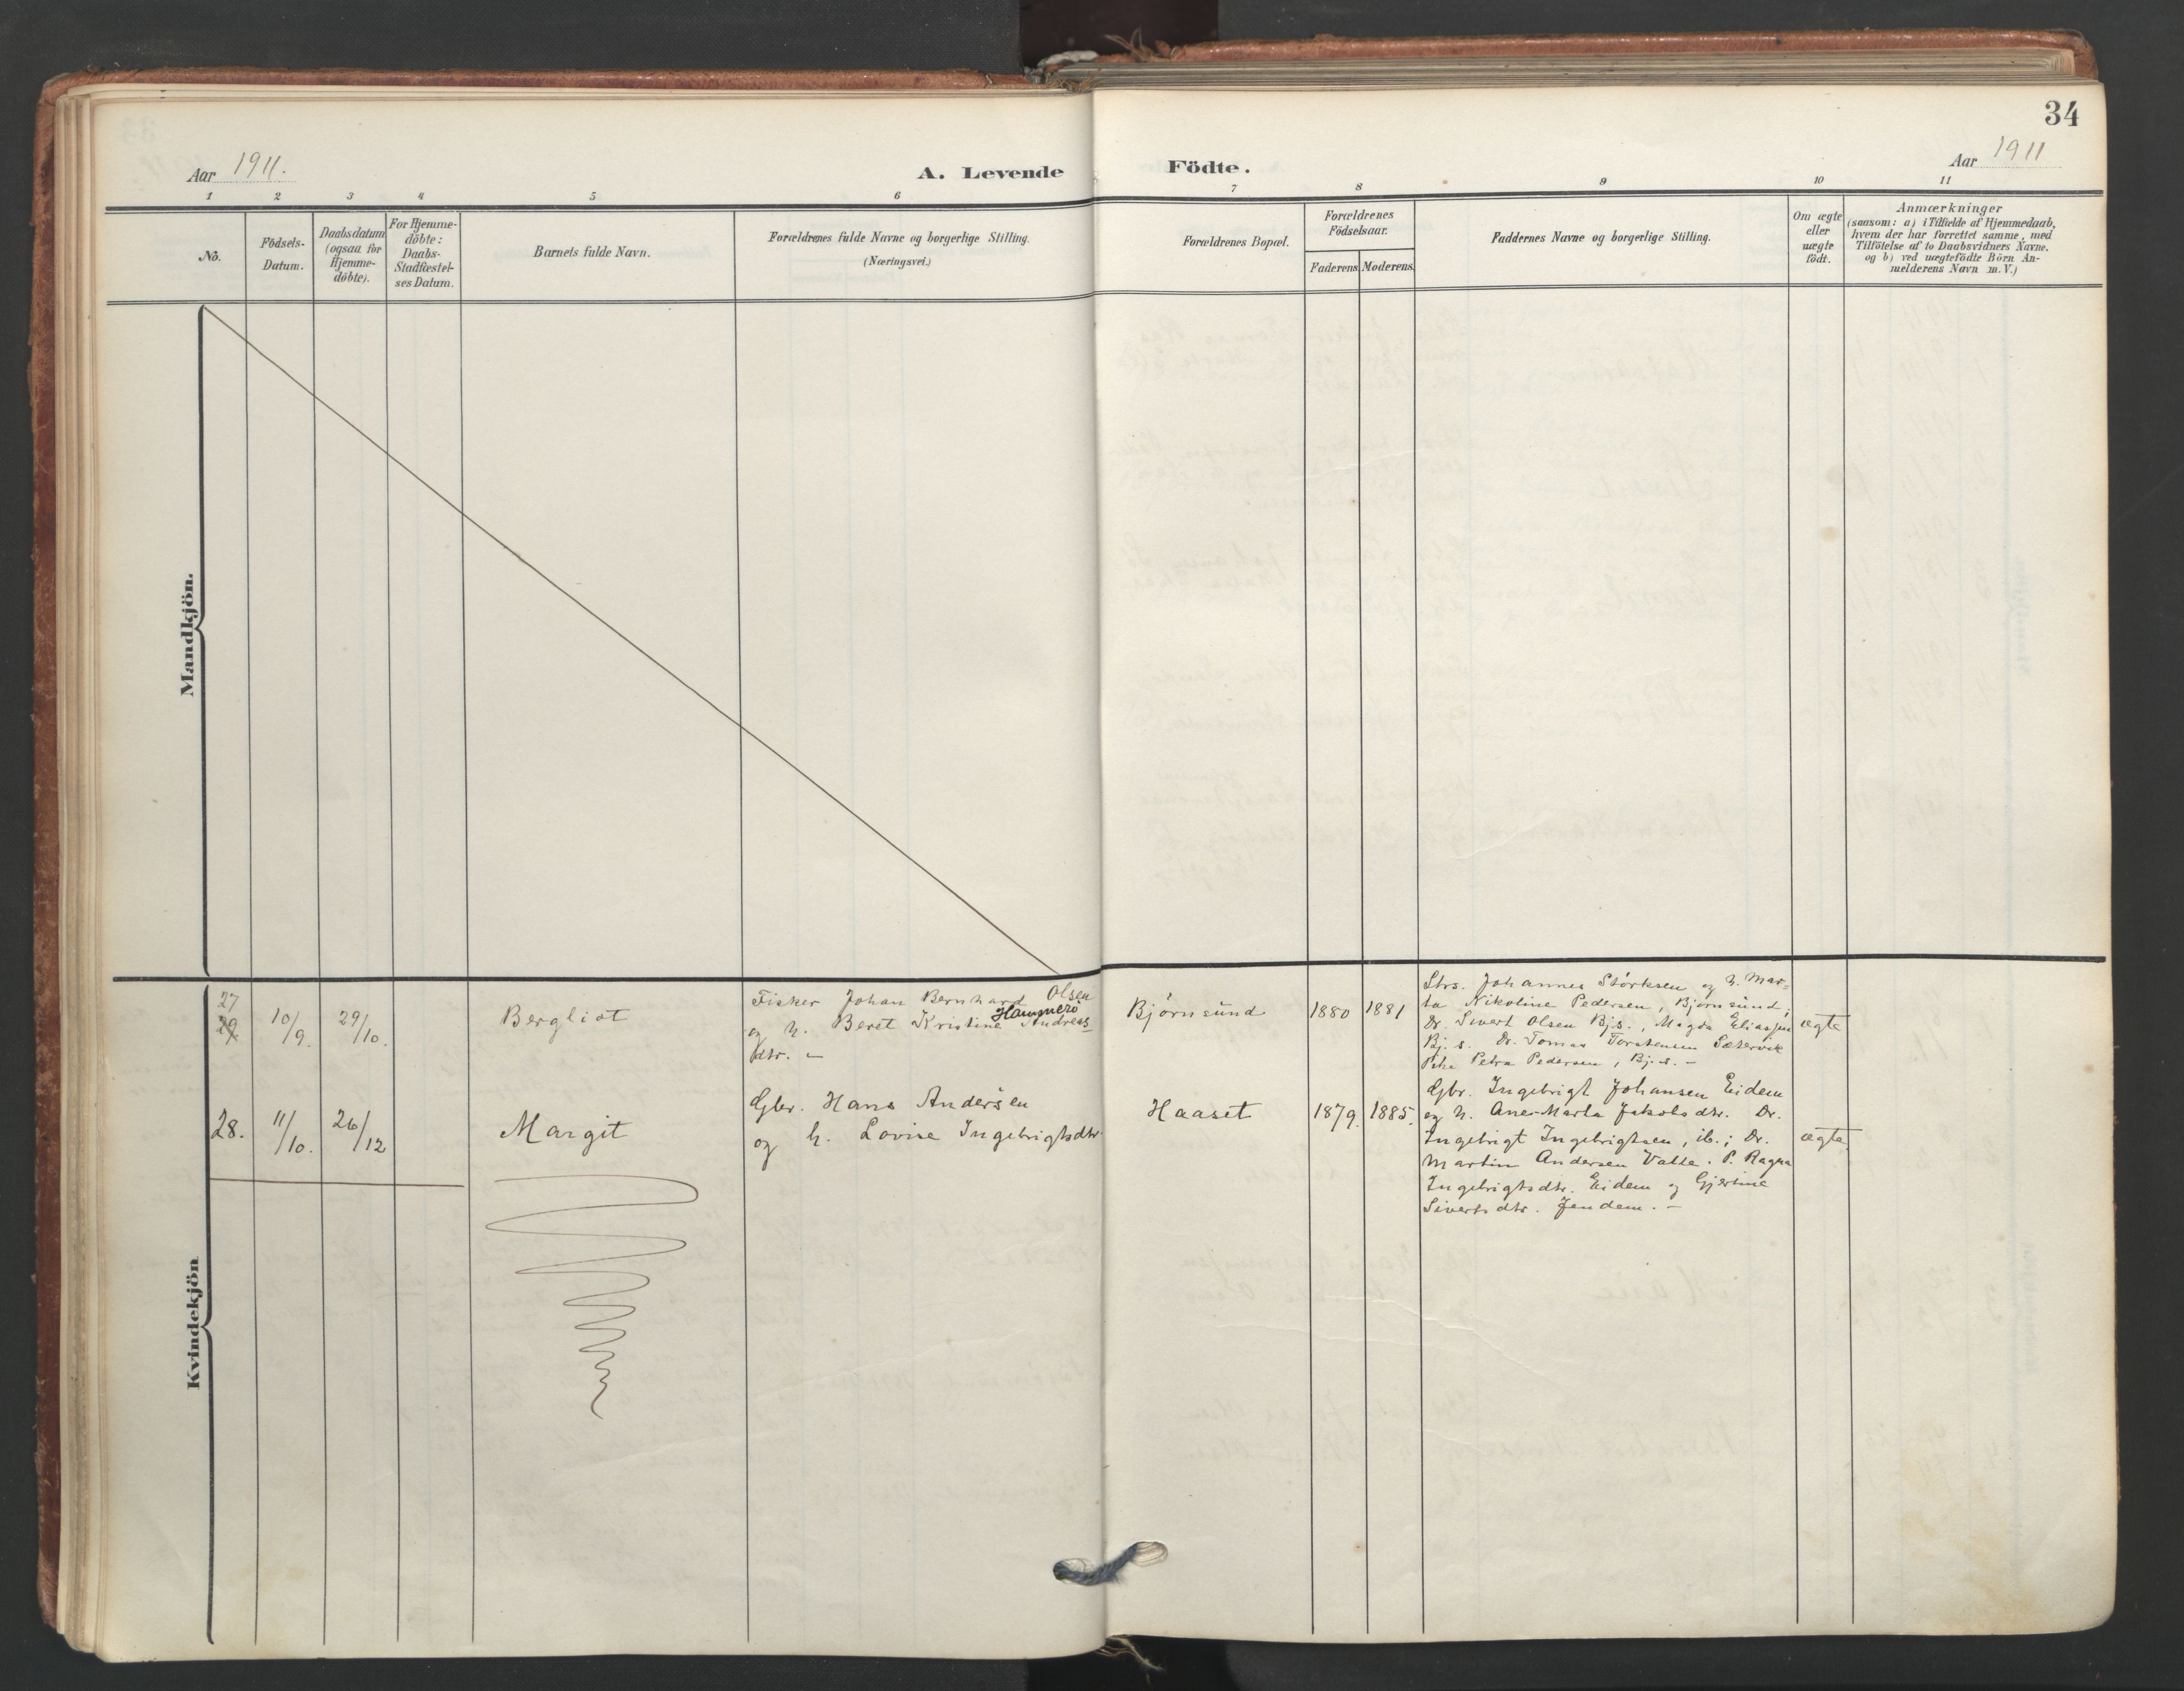 34
Aar 1911.
A. Levende Födte.
Aar 1911
1 2 3 4 5 6 7 8 9 10 11
No.
Födsels-
Datum.
Daabsdatum
(ogsaa for
Hjemme-
döbte).
For Hjemme-
döbte:
Daabs-
Stadfæstel-
ses Datum.
Barnets fulde Navn.
Forældrenes fulde Navne og borgerlige Stilling.
(Næringsvei.)
Forældrenes Bopæl.
Forældrenes
Födselsaar.
Faderens.
Moderens.
Faddernes Navne og borgerlige Stilling.
Om ægte
eller
uægte
födt.
Anmærkninger
(saasom: a) i Tilfælde af Hjemmedaab,
hvem der har forrettet samme, med
Tilföielse af to Daabsvidners Navne,
og b) ved uægtefödte Börn An-
melderens Navn m. V.)
Mandkjön.
Kvindekjön
27
29
10/9.
29/10.
Bergliot
Fisker Johan Bernhard Olsen
Hammerö
og h. Beret Kristine Andreas
dtr. –
Bjørnsund
1880
1881
Strs. Johannes Størksen og h. Mar-
ta Nikoline Pedersen, Bjørnsund,
Dr. Sivert Olsen Bj.s., Magda Eliassen
Bj. s. Dr. Tomas Torstensen Sætervik
Pike Petra Pedersen, Bj. s. –
ægte
28.
11/10.
26/12
Margit
Gbr. Hans Andersen
og h. Lovise Ingebrigtsdtr
Haaset
1879.
1885.
Gbr. Ingebrigt Johansen Eidem
og h. Ane-Marta Jakobsdtr. Dr.
Ingebrigt Ingebrigtsen, ib.; Dr.
Martin Andersen Valle. P. Ragna
Ingebrigtsdtr. Eidem og Gjertine
Sivertsdtr. Jendem. –
ægte